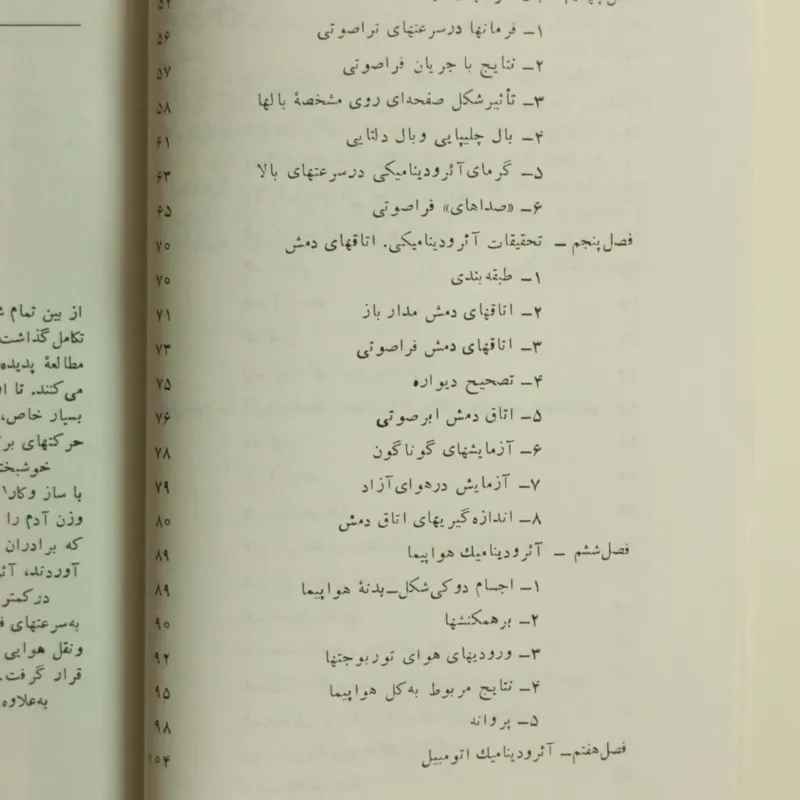 ۱ــ فرمانها درسرعتهای تراصوتی ۵۶
۲ــ نتایج با جریان فراصوتی ۵۷
۳ــ تأثیرشکل صفحه‌ای روی مشخصهٔ بالها ۵۸
۴ــ بال چلیپایی وبال دلتایی ۶۱
۵ــ گرمای‌آئرودینامیکی درسرعتهای بالا ۶۳
۶ــ «صداهای» فراصوتی ۶۵
فصل‌پنجم ــ تحقیقات آئرودینامیکی. اتاقهای دمش ۷۰
۱ــ طبقه‌بندی ۷۰
۲ــ اتاقهای دمش مدار باز ۷۱
۳ــ اتاقهای دمش فراصوتی ۷۳
۴ــ تصحیح دیواره ۷۵
۵ــ اتاق دمش ابرصوتی ۷۶
۶ــ آزمایشهای گوناگون ۷۸
۷ــ آزمایش درهوای‌آزاد ۷۹
۸ــ اندازه‌گیریهای اتاق دمش ۸۰
فصل‌ششم ــ آئرودینامیك هواپیما ۸۹
۱ــ اجسام دوکی‌شکل‌ــ‌بدنهٔ هواپیما ۸۹
۲ــ برهمکنشها ۹۰
۳ــ ورودیهای هوای توربوجتها ۹۲
۴ــ نتایج مربوط به‌کل هواپیما ۹۵
۵ــ پروانه ۹۸
فصل‌هفتم‌ــ آئرودینامیك اتومبیل ۱۰۴
از بین تمام
تکامل‌گذاشت
مطالعهٔ پدیده
می‌کنند. تا
بسیار خاص،
حرکتهای
خوشبخت
با ساز وکار۱
وزن آدم را
که برادران
آوردند،
درکمتر
به‌سرعتهای
ونقل هوایی
قرار گرفت.
به‌علاوه